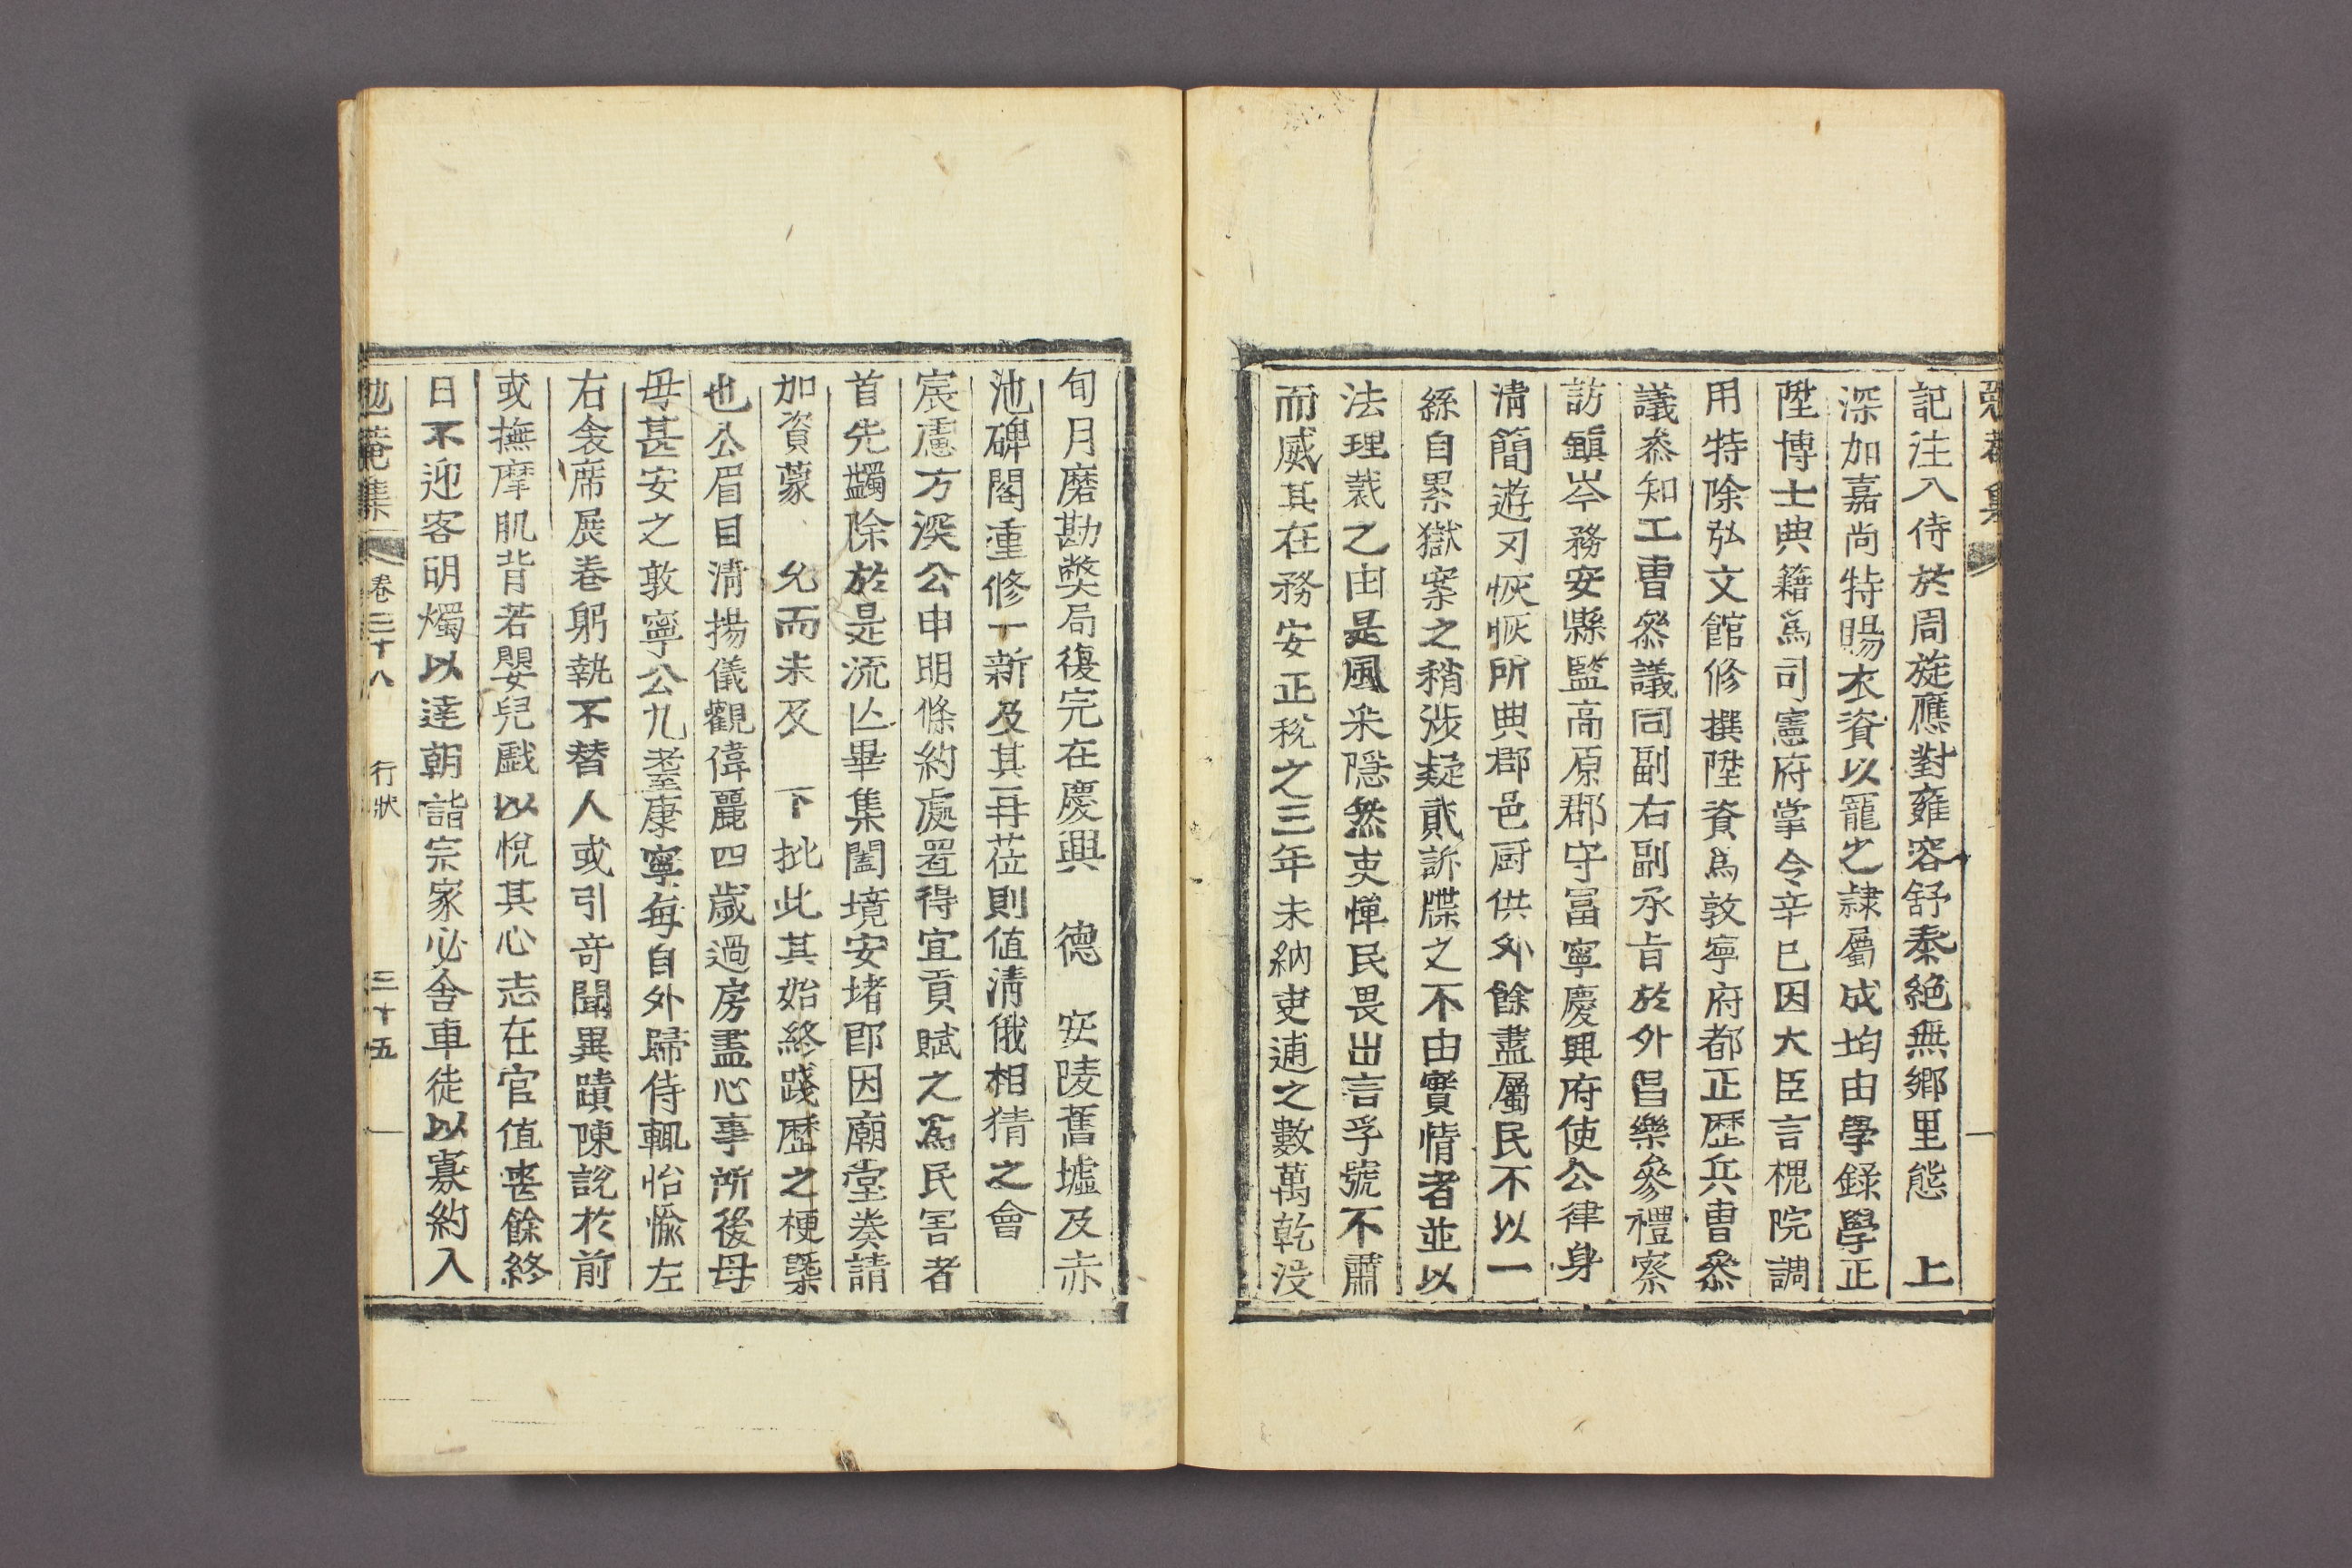 記注入侍於周旋應對雍容舒泰絶無鄉里態 上
深加嘉尚特賜衣資以寵之隷屬成均由學録學正
陞博士典籍爲司憲府掌令辛巳因大臣言槐院調
用特除弘文館修撰陞資爲敦寧府都正歷兵曹叅
議叅知工曹叅議同副右副承旨於外昌樂參禮察
訪鎭岑務安縣監高原郡守富寧慶興府使公律身
淸簡遊刃恢恢所典郡邑厨供外餘盡屬民不以一
絲自累獄案之稍涉疑貳訴牒之不由實情者並以
法理裁之由是風采隠然吏憚民畏出言孚號不肅
而威其在務安正稅之三年未納吏逋之數萬乾沒
旬月磨勘獘局復完在慶興 德 安陵舊墟及赤
池碑閣重修一新及其再莅則值淸俄相猜之會
宸慮方深公申明條約處置得宜貢賦之爲民害者
首先蠲除於是流亾畢集闔境安堵卽因廟堂奏請
加資蒙 允而未及 下批此其始終踐歷之梗槩
也公眉目淸揚儀觀偉麗四歲過房盡心事所後母
母甚安之敦寧公九耋康寧每自外歸侍輒怡愉左
右衾席展卷躬執不替人或引奇聞異蹟陳說於前
或撫摩肌背若嬰兒戱以悅其心志在官值喪餘終
日不迎客明燭以達朝詣宗家必舍車徒以寡約入
卷三十八 行狀 三十五